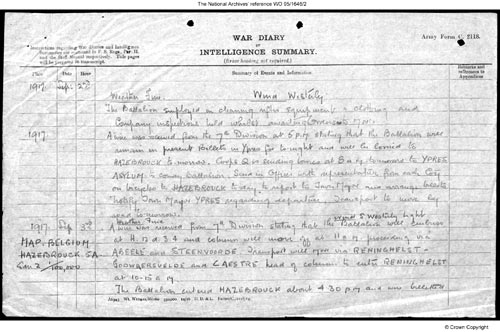 The National Archives' reference WO 95/1645/2
WAR DIARY
or
INTELLIGENCE SUMMARY.
(Erase heading not required.)
Army Form C. 2118.
Instructions regarding War Diaries and Intelligence
Summaries are contained in F. S. Regs., Part II.
and the Staff Manual respectively. Title pages
will be prepared in manuscript.
Place Date Hour
Summary of Events and Information
Remarks and
references to
Appendices
1917 Sept 2nd
Weather Fine Wind Westerly
The Battalion employed in cleaning equipment & clothing and
Company inspections held whilst awaiting orders to move.
1917.
A wire was received from the 7th Division at 5 p.m. stating that the Battalion will
remain in present Billets in Ypres for to-night and will be moved to
HAZEBROUCK to morrow. Corps Q is sending lorries at 8 a.m. to-morrow to YPRES
ASYLUM to convey battalion. Send an Officer with representative from each Coy
on bicycles to HAZEBROUCK to-day to report to Town Major and arrange billets
Notify Town Major YPRES regarding departure. Transport to move by
road to-morrow.
1917 Sep 3rd
Weather Fine Wind S Westerly light
MAP. BELGIUM
HAZEBROUCK 5A
100,000
A wire was received from 7th Division stating that the Battalion will embus
at H. 12 d 3.4 and column will move off at 11 a.m. proceeding via
ABEELE and STEENVOORDE. Transport will move via RENINGHELST -
GODWAERSVELDE and CAESTRE head of column to enter RENINGHELST
at 10-15 a.m.
The Battalion entered HAZEBROUCK about 4 30 p.m. and was billeted
© Crown Copyright